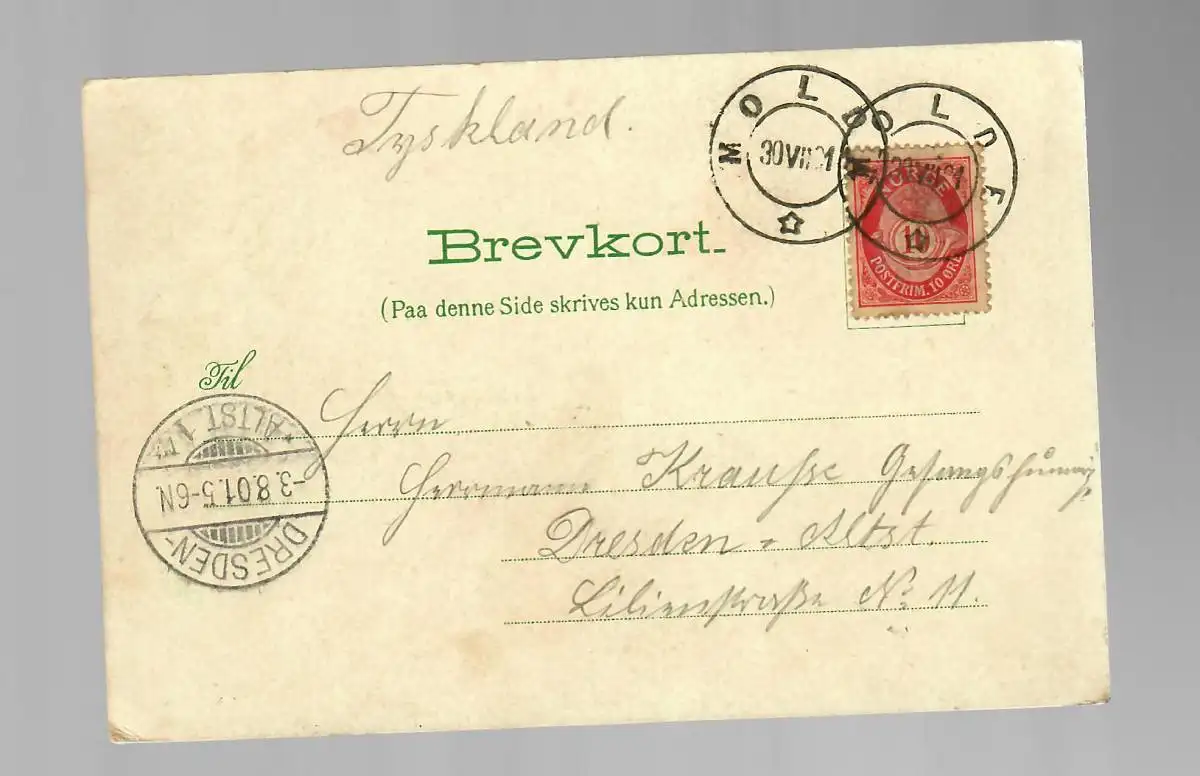 Tyskland.
MOLDE
30 VII 01
MOLDE
30 VII 01
NORGE
10
POSTFRIM. 10 ØRE
Brevkort.
(Paa denne Side skrives kun Adressen.)
Til
Herrn
Herrmann Krauße
Dresden-Altst.
Lilienstraße No 11.
DRESDEN-
-3.8.01.5-6N.
*ALTST. 1